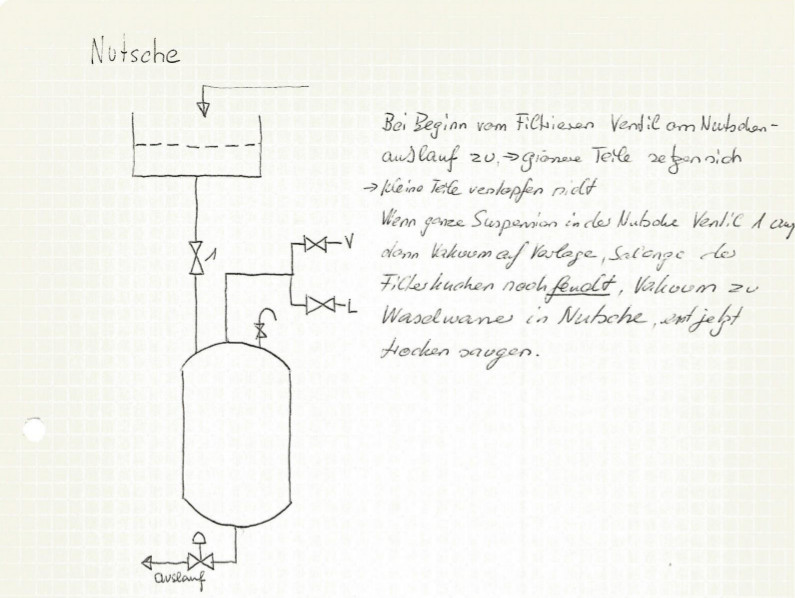 Nutsche
Bei Beginn vom Filtrieren Ventil am Nutschen-
auslauf zu, → grössere Teile setzen sich
→ kleine Teile verstopfen nicht
Wenn ganze Suspension in der Nutsche Ventil 1 auf
dann Vakuum auf Vorlage, Solange der
Filterkuchen noch feucht, Vakuum zu
Waschwasser in Nutsche, erst jetzt
trocken saugen.
V
1
L
Auslauf